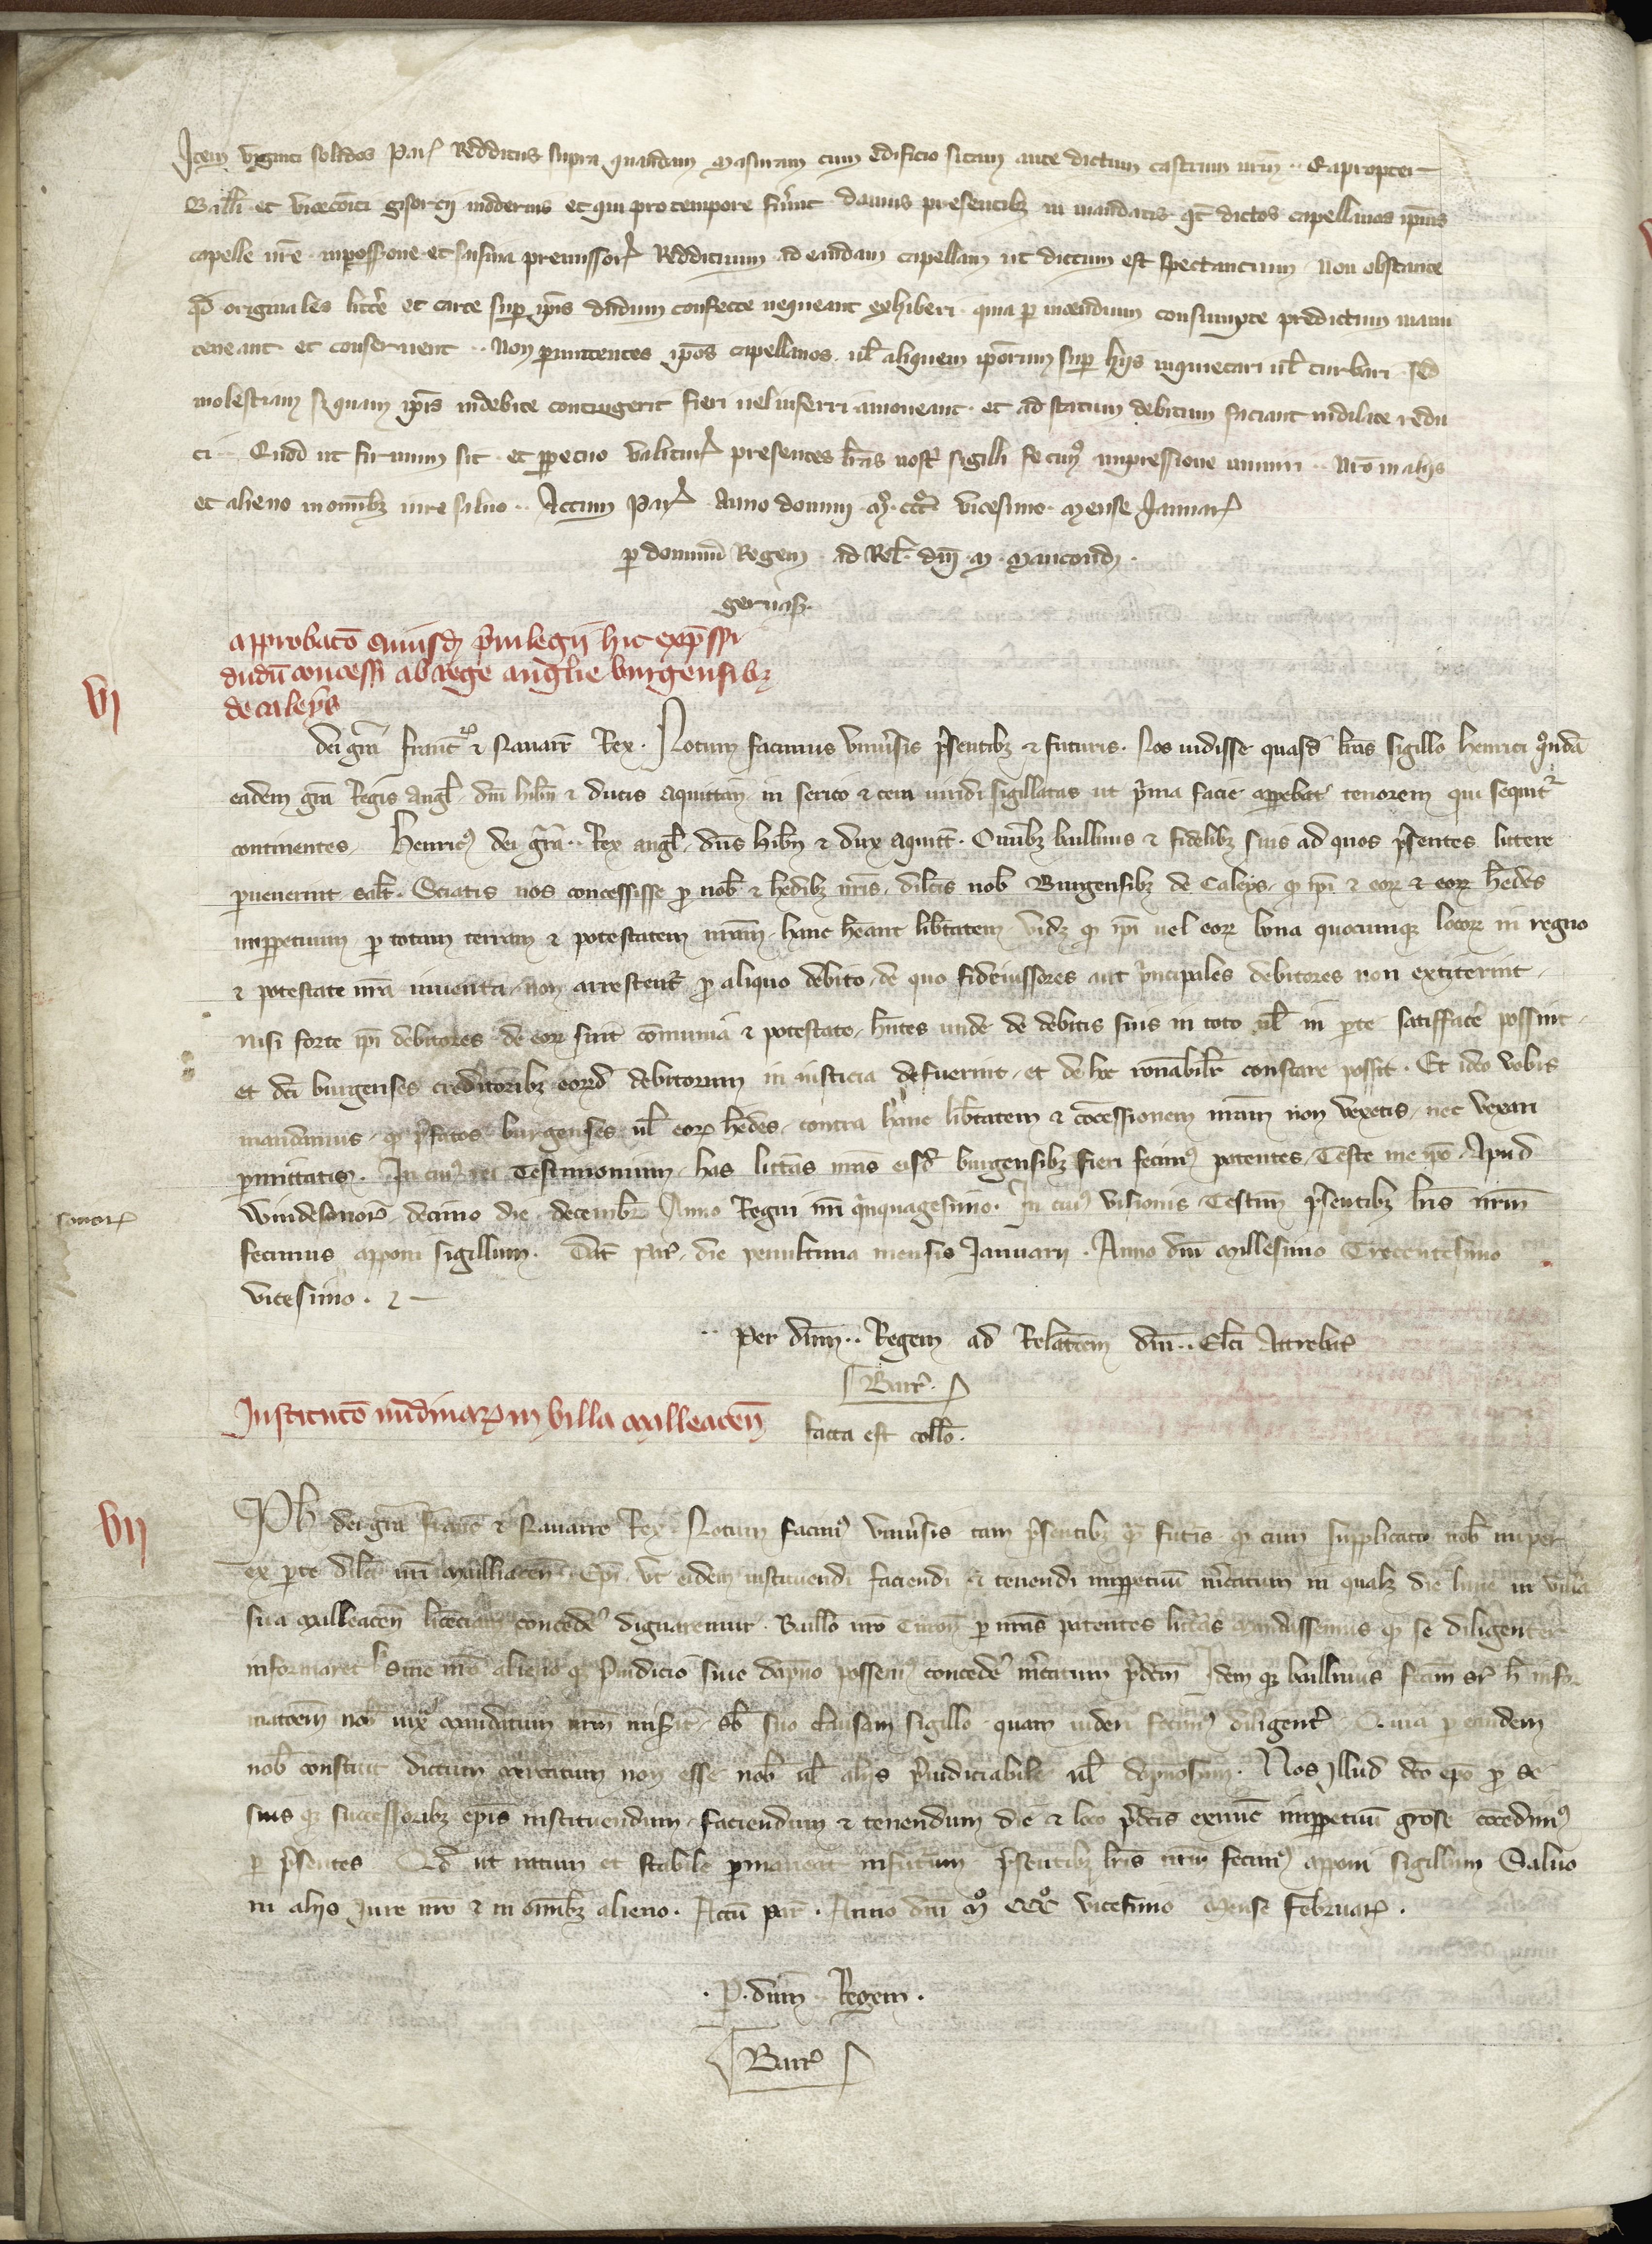 Item viginti solidos Par̃ Redditus supra quandam masuram cum edificio sitam ante dictum castrum nr̃m .. Eapropter
Bailli et vicecõiti gisorcii modernis et qui pro tempore fũint damus presentibꝫ in mandatis qd̃ dictos capellanos ip̃ius
capelle nr̃e in possessione et saisina premissorꝝ Reddituum ad eandam capellam ut dictum est spectantium Non obstante
qd̃ originales litt̃e et carte sup̃ ip̃is dudum confecte nequeant exhiberi quia p̃ incendium consumpte predictum manu
teneant et conseruent .. Non p̃mittentes ip̃os capellanos ul̃ aliquem ip̃orum sup̃ hijs inquietari ul̃ turbari sed
molestiam si quam ip̃is indebite contingerit fieri uel inferri amoueant et ad statum debitum faciant indilate redu
ci .. Quod ut firmum sit et pp̃etuo valiturꝝ presentes lr̃as nostr̃ sigilli fecimꝰ impressione muniri .. Nr̃o in alijs
et alieno in om̃ibꝫ iure saluo .. Actum Par̃ Anno domini m̊ ccc̊ vicesimo mense Januar̃
p̃ dominũ Regem ad Rel̃ dñi m
geruas̃
approbatõ cuiusd̃ p̃uilegii hic exp̃ssi
dudũ concessi ab rege anglie burgensibꝫ
de caleys
VI
dei gr̃a franc̃ ⁊ Nauarr̃ Rex . Notum facimus vniũsis p̃sentibꝫ ⁊ futuris . Nos uidisse quasd̃ lr̃as sigillo Henrici q̃ndã
eadem gr̃a Regis angl̃ dñi hib̃n ⁊ ducis aquittan̄ in serico ⁊ cera uiridi sigillatas ut p̃ma facie app̃ebat tenorem qui sequit̃
continentes Henricꝰ dei gr̃a .. Rex angl̃ dñs hib̃n ⁊ dux aquitt̃ . Om̃ibꝫ balliuis ⁊ fidelibꝫ suis ad quos p̃sentes littere
p̃uenerint salt̃ . Sciatis nos concessisse p̃ nob̃ ⁊ h̃edibꝫ nr̃is dil̃cis nob̃ Burgensibꝫ de Caleys q̃ ip̃i ⁊ eoꝝ ⁊ eoꝝ h̃edes
imp̃petuum p̃ totam terram ⁊ potestatem nr̃am hanc h̃eant lib̃tatem vidꝫ q̃ ip̃i uel eoꝝ bona quocumqꝫ locoꝝ in regno
⁊ potestate nr̃a inuenta non arrestent̃ p̃ aliquo debito de quo fideiussores aut p̃ncipales debitores non extiterint
nisi forte ip̃i debitores de eoꝝ sint cõmunia ⁊ potestate h̃ntes unde de debitis suis in toto ul̃ in p̃te satisfac̃e possint
et dc̃i burgenses creditoribꝫ eoꝝd̃ debitorum in iusticia defuerint et de hoc rõnabilr̃ constare possit . Et ideo vobis
mandamus q̃ p̃fatos burgenses ul̃ eoꝝ h̃edes contra hanc lib̃tatem ⁊ cõcessionem nr̃am non vexetis nec vexari
p̃mittatis . In cuiꝰ rei Testimonium has litt̃as nr̃as eisd̃ burgensibꝫ fieri fecimꝰ patentes Teste me ip̃o Apud
sonor̃
windesonor̃ decimo die decembr̃ Anno Regni nr̃i q̃nquagesimo . In cuiꝰ visionis Testim̃ p̃sentibꝫ lr̃is nr̃m
fecimus apponi sigillum . Dat̃ Par̃ die penultima mensis Januarij . Anno dñi millesimo Trecentesimo
vicesimo .
Per dñm .. Regem ad Relac̃oem dñi .. El̃ci Attrebat̃
Barr̃
Institutõ nũdinaꝝ in villa milleacen̄
facta est coll̃o .
VII
Ph̃ dei gr̃a franc̃ ⁊ Nauarre Rex . Notum facimꝰ vniũsis tam p̃sentibꝫ q̃ futis̃ q̃ cum supplicato nob̃ nup̃er
ex p̃te dil̃ci nr̃i mailliacen̄ Ep̃i vt eidem instituendi faciendi ⁊ tenendi imp̃petuũ m̃catum in qualꝫ die lune in villa
sua milleacen̄ licẽciam conceder̃ dignaremur . Baillo nr̃o Turon̄ p̃ nr̃as patentes litt̃as mandassemus q̃ se diligenter
informaret si sine nr̃o alieno q̃ p̃iudicio siue dãpno possemꝰ conceder̃ m̃catum p̃dc̃m Idem qꝫ balliuus fc̃am sr̃ h̃ infor
mac̃oem nob̃ iux̃ mandatum nr̃m misit sb̃ suo clausam sigillo quam uideri fecimꝰ diligent̃ . Quia p̃ eandem
nob̃ constitit dictum mercatum non esse nob̃ ul̃ alijs p̃iudiciabile ul̃ dãpnosum . Nos illud dc̃o ep̃o p̃ se
suis qꝫ successoribꝫ ep̃is instituendum faciendum ⁊ tenendum die ⁊ loco p̃dc̃is exnunc̃ imp̃petuũ gr̃ose cõcedimꝰ
p̃ p̃sentes Qd̃ ut ratum et stabile p̃maneat in futurum p̃sentibꝫ lr̃is nr̃m fecimꝰ apponi sigillum Saluo
in alijs Jure nr̃o ⁊ in om̃ibꝫ alieno . Actũ Par̃ . Anno dñi m̊ ccc̊ vicesimo mense februar̃ .
. P̃ . dñm .. Regem .
Barr̃